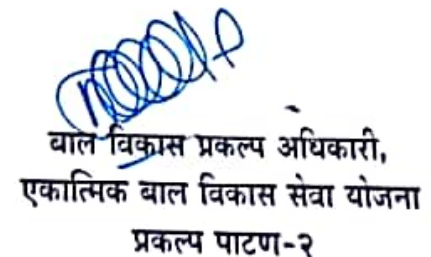 बाल विकास प्रकल्प अधिकारी,
एकात्मिक बाल विकास सेवा योजना
प्रकल्प पाटण-२